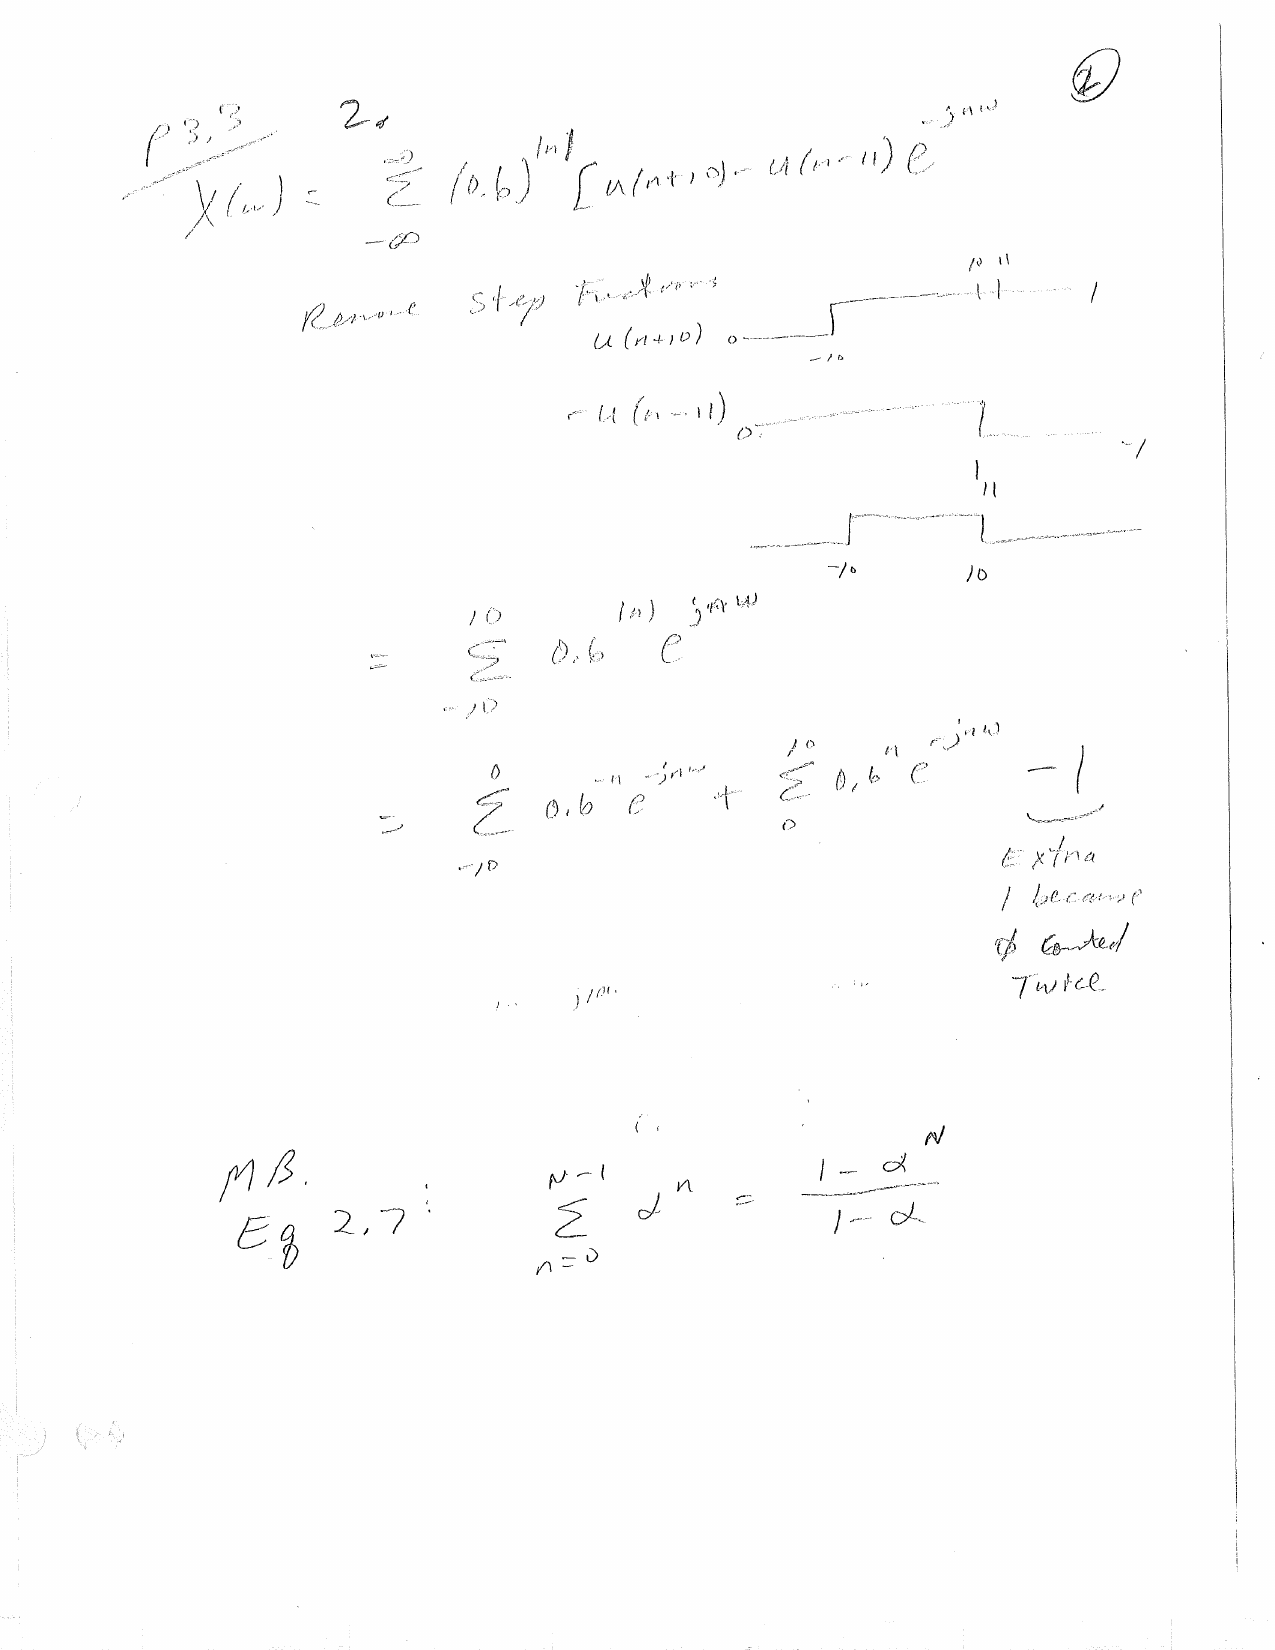 ②
P 3.3 2.
X(ω) = ∑_{-∞}^{∞} (0.6)^{|n|} [u(n+10) - u(n-11)) e^{-jnω}
Remove Step Functions
10 11
1
u(n+10) 0
-10
-u(n-11) 0
-1
11
-10 10
= ∑_{-10}^{10} 0.6^{|n|} e^{jnω}
= ∑_{-10}^{0} 0.6^{-n} e^{-jnω} + ∑_{0}^{10} 0.6^{n} e^{-jnω} - 1
Extra
1 because
0 Counted
Twice
M B.
Eq 2.7: ∑_{n=0}^{N-1} α^n = (1 - α^N) / (1 - α)